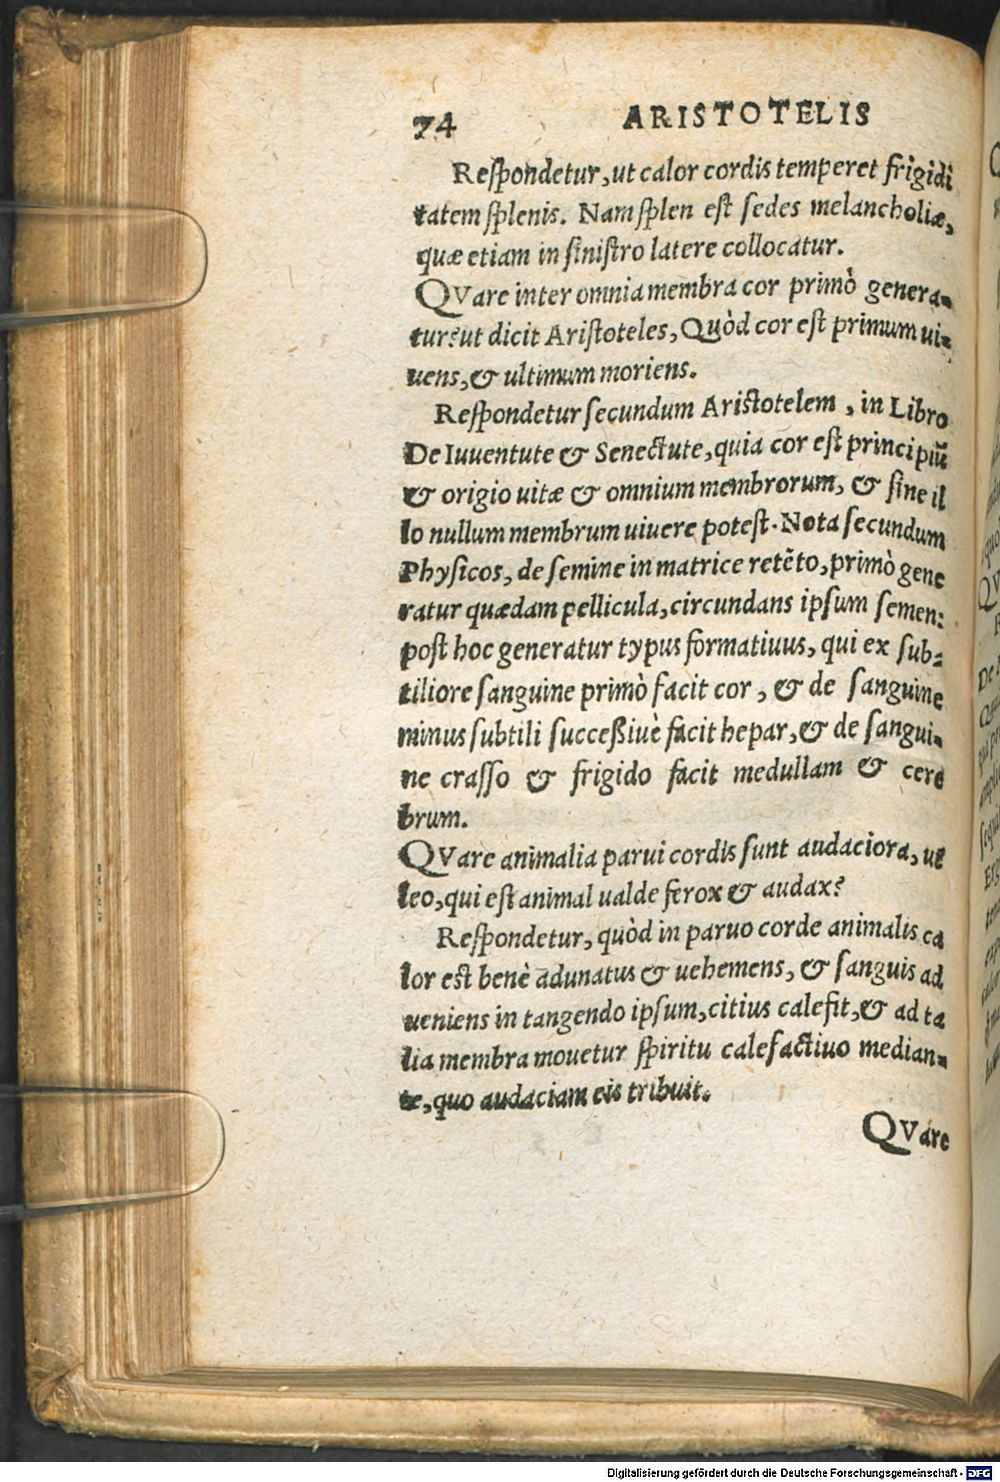 74 ARISTOTELIS
Reſpondetur, ut calor cordis temperet frigidi
tatem ſplenis. Nam ſplen eſt ſedes melancholiæ,
quæ etiam in ſiniſtro latere collocatur.
QVare inter omnia membra cor primò genera-
tur? ut dicit Ariſtoteles, Quòd cor eſt primum ui-
uens, & ultimum moriens.
Reſpondetur ſecundum Ariſtotelem, in Libro
De Iuuentute & Senectute, quia cor eſt principiũ
& origio uitæ & omnium membrorum, & ſine il
lo nullum membrum uiuere poteſt. Nota ſecundum
Phyſicos, de ſemine in matrice retẽto, primò gene
ratur quædam pellicula, circundans ipſum ſemen:
poſt hoc generatur typus formatiuus, qui ex ſub-
tiliore ſanguine primò facit cor, & de ſanguine
minus ſubtili ſucceßiuè facit hepar, & de ſangui-
ne craſſo & frigido facit medullam & cere
brum.
QVare animalia parui cordis ſunt audaciora, ut
leo, qui eſt animal ualde ferox & audax?
Reſpondetur, quòd in paruo corde animalis ca
lor eſt benè adunatus & uehemens, & ſanguis ad
ueniens in tangendo ipſum, citius calefit, & ad ta
lia membra mouetur ſpiritu calefactiuo median-
te, quo audaciam eis tribuit.
QVare
Digitalisierung gefördert durch die Deutsche Forschungsgemeinschaft - DFG